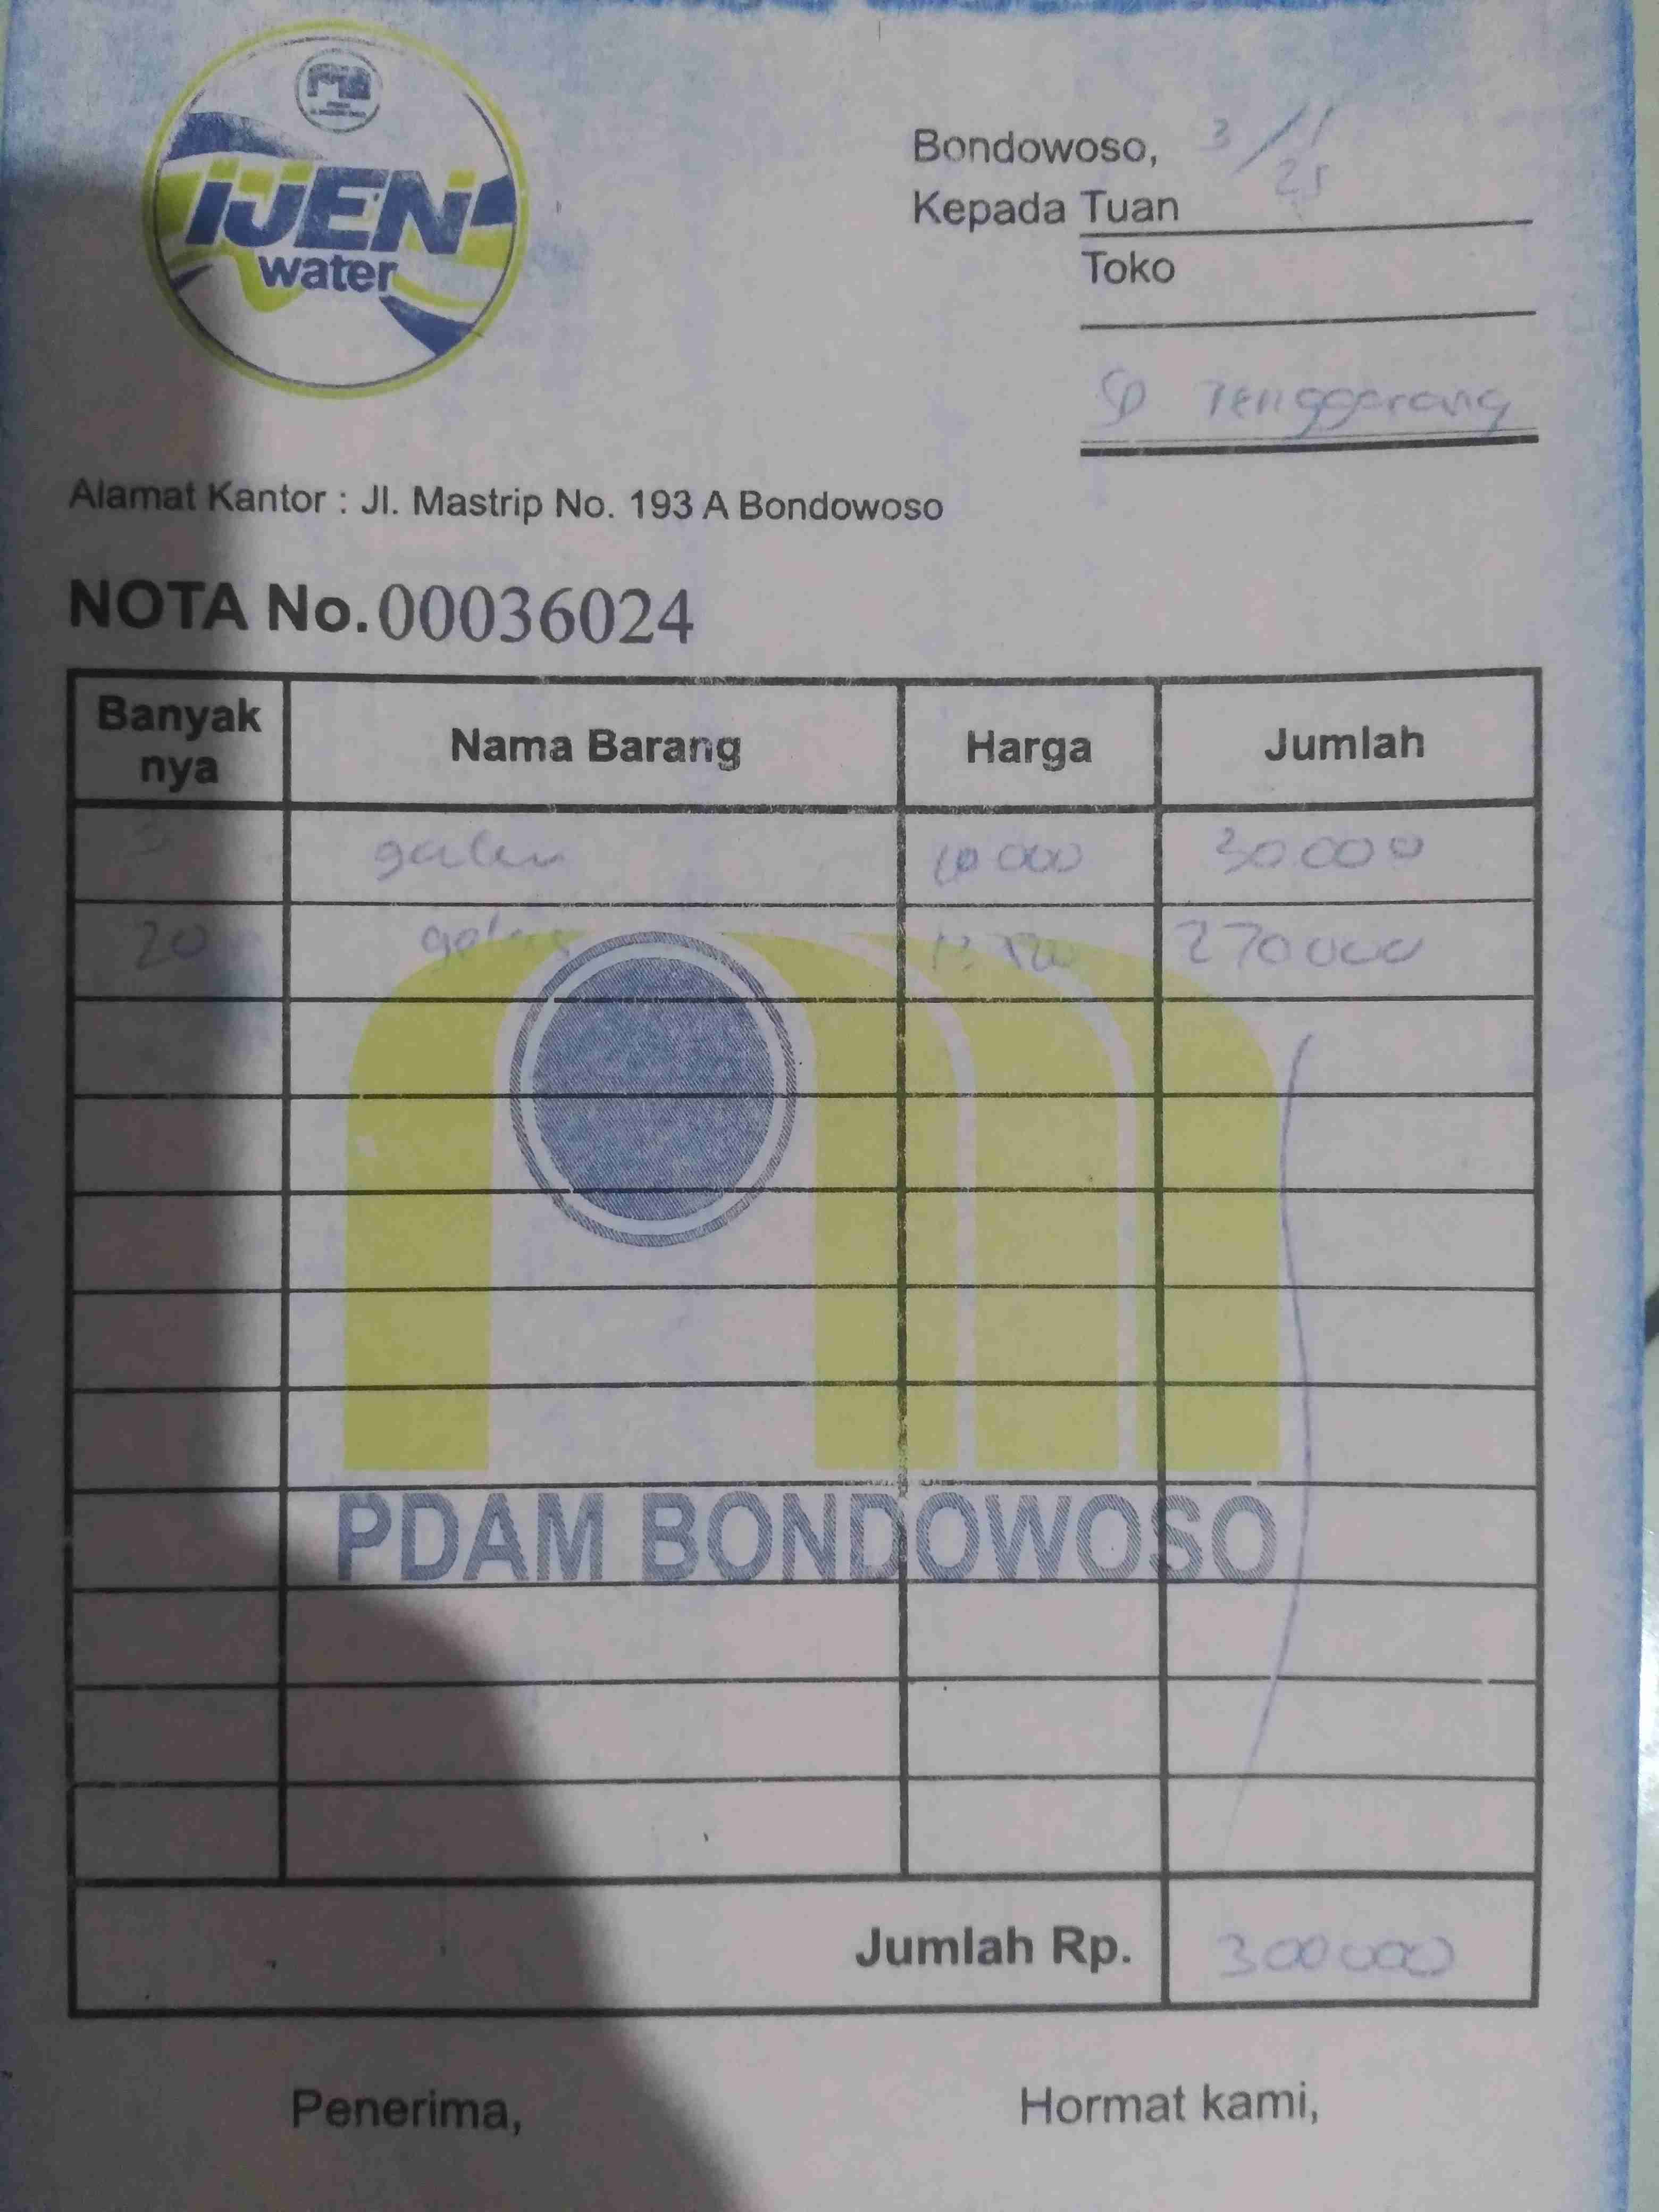 IJEN
water
Bondowoso, 3/1
25
Kepada Tuan
Toko
SP Tenggarang
Alamat Kantor : Jl. Mastrip No. 193 A Bondowoso
NOTA No. 00036024
Banyak nya Nama Barang Harga Jumlah
3 galon 10 000 30 000
20 270 000
PDAM BONDOWOSO
Jumlah Rp. 300 000
Penerima, Hormat kami,